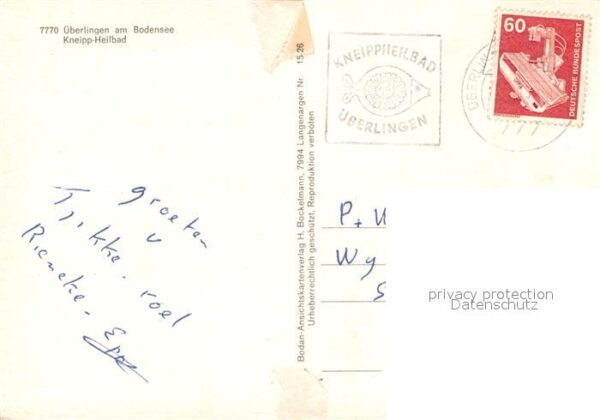 7770 Überlingen am Bodensee
Kneipp-Heilbad
groeten
v
Tjikke-roel
Rieneke-
Bodan-Ansichtskartenverlag H. Bockelmann, 7994 Langenargen Nr. 15-26
Urheberrechtlich geschützt. Reproduktion verboten
KNEIPPHEILBAD
ÜBERLINGEN
ÜBERLIN
777
60
DEUTSCHE BUNDESPOST
P+
Wy
S
privacy protection
Datenschutz